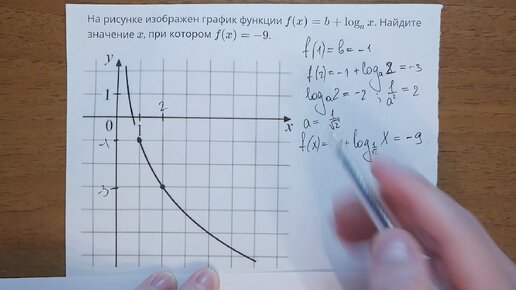 На рисунке изображен график функции f(x) = b + logₐ x. Найдите
значение x, при котором f(x) = −9.
y
1
0
x
1
2
-1
-3
f(1) = b = -1
f(2) = -1 + logₐ 2 = -3
logₐ 2 = -2 ; 1/a² = 2
a = 1/√2
f(x) = + log X = -9